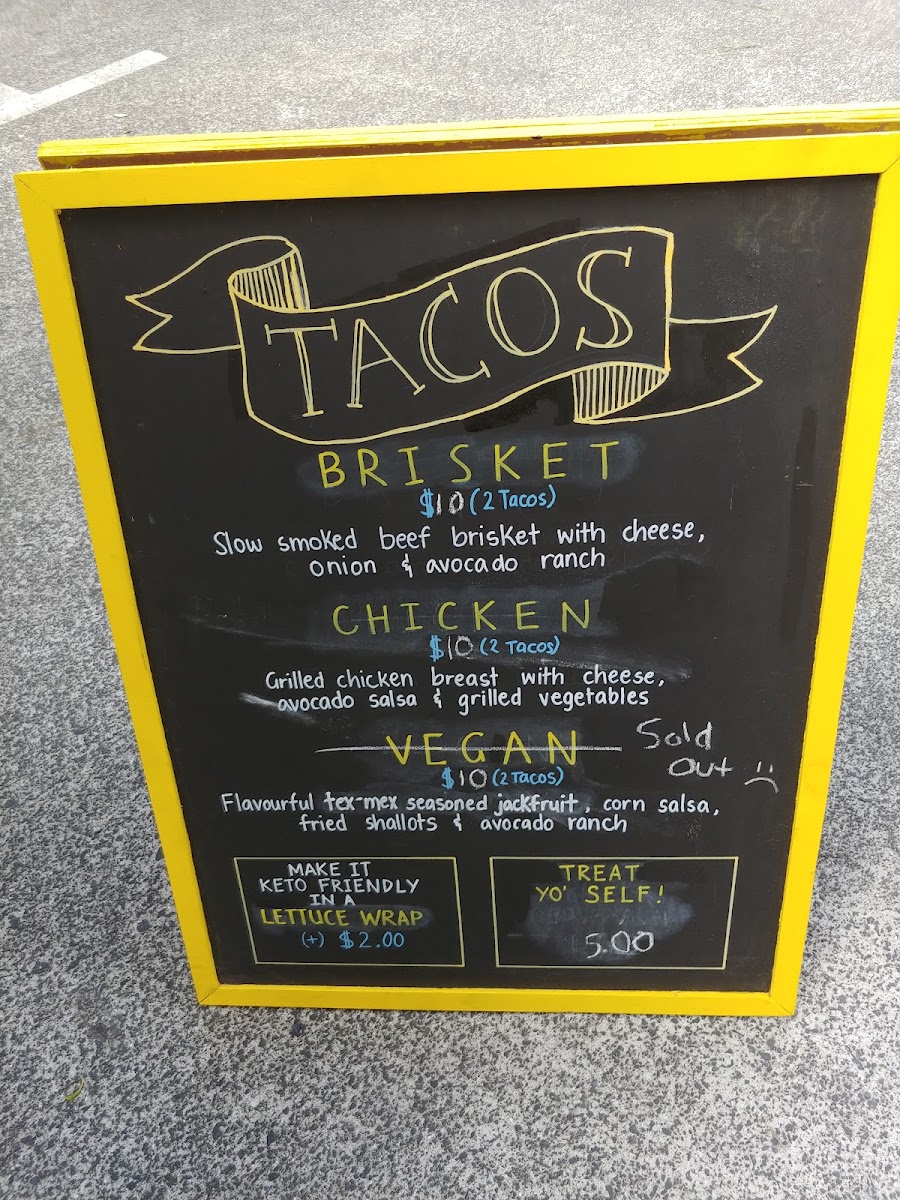 TACOS
BRISKET
$10 (2 Tacos)
Slow smoked beef brisket with cheese,
onion & avocado ranch
CHICKEN
$10 (2 Tacos)
Grilled chicken breast with cheese,
avocado salsa & grilled vegetables
VEGAN
Sold
Out :(
$10 (2 Tacos)
Flavourful tex-mex seasoned jackfruit, corn salsa,
fried shallots & avocado ranch
MAKE IT
KETO FRIENDLY
IN A
LETTUCE WRAP
(+) $2.00
TREAT
YO' SELF!
5.00